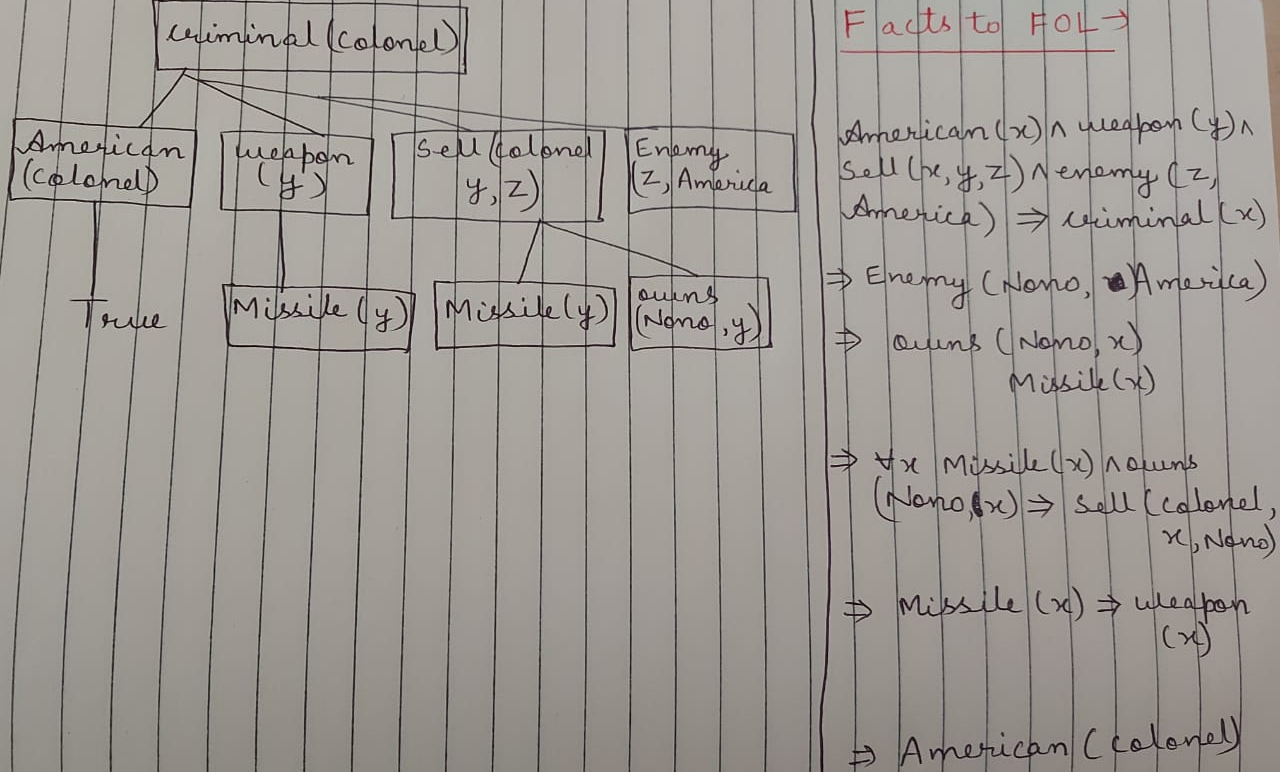 Criminal (Colonel)
American
(Colonel)
Weapon
(y)
Sell (Colonel
y, z)
Enemy
(z, America
True
Missile (y)
Missile (y)
owns
(Nono, y)
Facts to FOL →
American (x) ∧ weapon (y) ∧
Sell (x, y, z) ∧ enemy (z,
America) ⇒ criminal (x)
⇒ Enemy (Nono, America)
⇒ owns (Nono, x)
Missile (x)
⇒ ∀x Missile (x) ∧ owns
(Nono, x) ⇒ Sell (colonel,
x, Nono)
⇒ Missile (x) ⇒ weapon
(x)
⇒ American (Colonel)